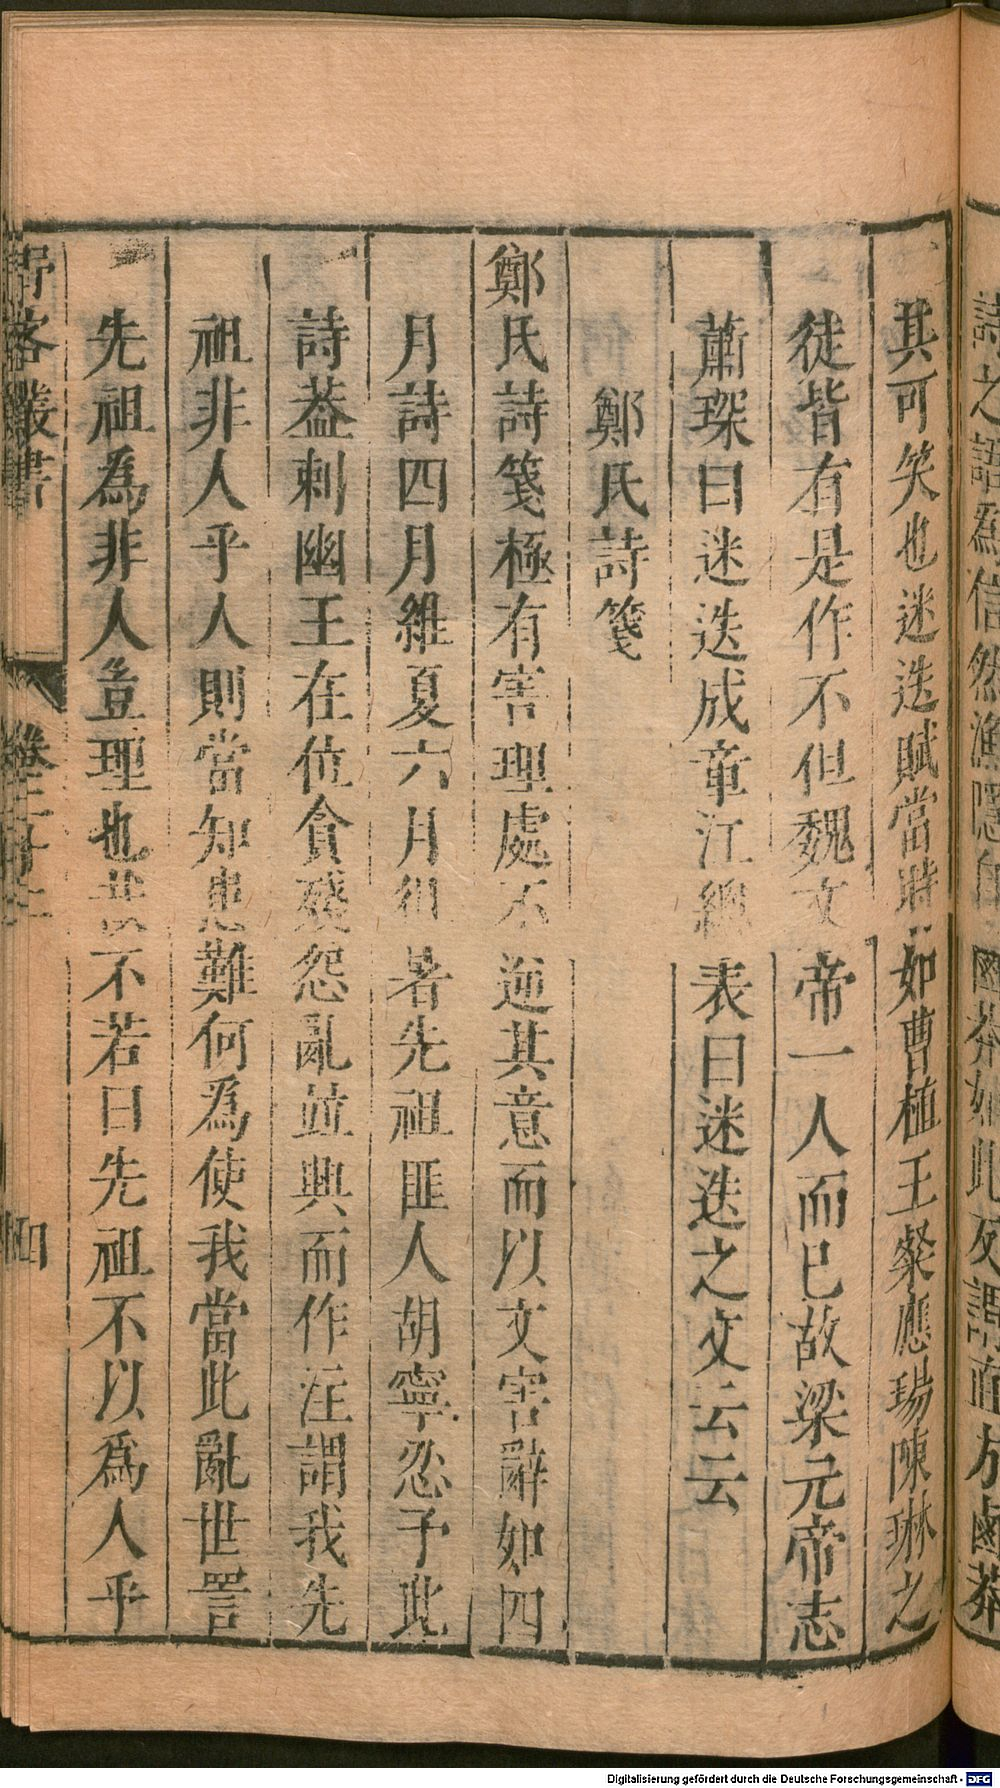 詩之語爲信然漁隱
鹵莽如此反謂
方鹵莽
其可笑也迷迭賦當時如曹植王粲應瑒陳琳之
徒皆有是作不但魏文帝一人而已故梁元帝志
蕭琛曰迷迭成章江總表曰迷迭之文云云
鄭氏詩箋
鄭氏詩箋極有害理處不逆其意而以文害辭如四
月詩四月維夏六月徂暑先祖匪人胡寧忍予此
詩葢刺幽王在位貪殘怨亂竝興而作注謂我先
祖非人乎人則當知患難何爲使我當此亂世詈
先祖為非人豈理也哉不若曰先祖不以爲人乎
野客叢書
卷二十
四
Digitalisierung gefördert durch die Deutsche Forschungsgemeinschaft - DFG